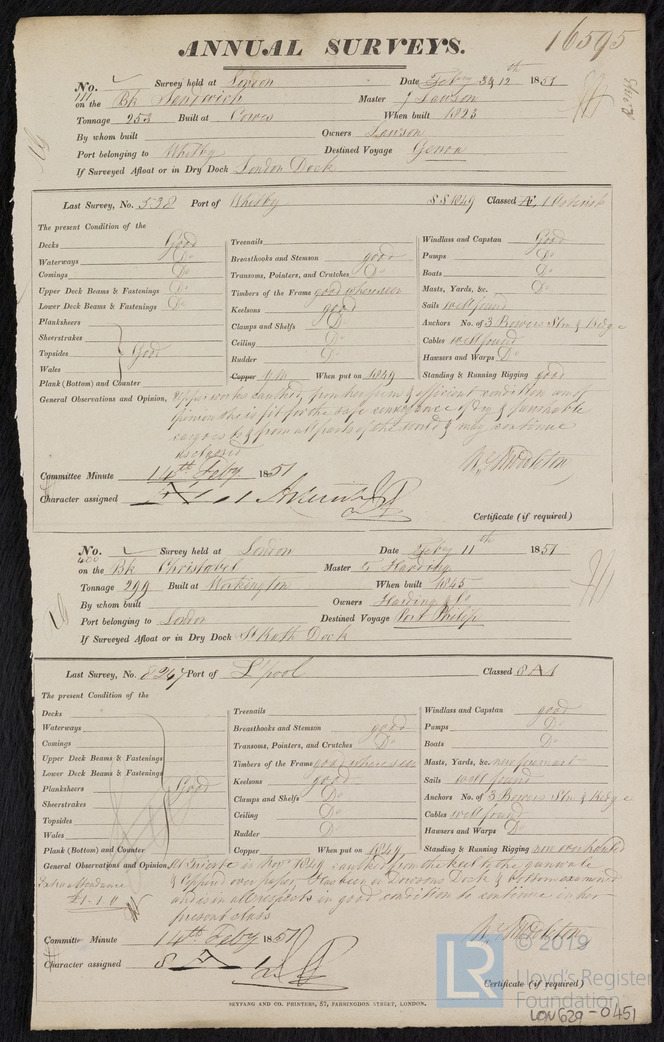 ANNUAL SURVEYS. 16595
No. Survey held at London Date Feby 12th 1851
on the Bk Sandwich Master J Lawson
Tonnage 253 Built at Cowes When built 1823
By whom built Owners Lawson
Port belonging to Whitby Destined Voyage Genoa
If Surveyed Afloat or in Dry Dock London Dock
Last Survey, No. 538 Port of Whitby SS 1849 Classed Æ 1
The present Condition of the
Decks Good
Waterways Do
Comings Do
Upper Deck Beams & Fastenings Do
Lower Deck Beams & Fastenings Do
Planksheers
Sheerstrakes
Topsides Good
Wales
Plank (Bottom) and Counter
Treenails
Breasthooks and Stemson good
Transoms, Pointers, and Crutches Do
Timbers of the Frame good where seen
Keelsons good
Clamps and Shelfs Do
Ceiling Do
Rudder Do
Copper YM When put on 1849
Windlass and Capstan Good
Pumps Do
Boats Do
Masts, Yards, &c. Do
Sails well found
Anchors No. of 3 Bowers Stm & Kedge
Cables well found
Hawsers and Warps Do
Standing & Running Rigging good
General Observations and Opinion, Upper works caulked, from her firm & efficient condition am of
opinion she is fit for the safe conveyance of dry & perishable
cargoes to & from all parts of the world & may continue
as classed
Committee Minute 14th Feby 1851
Character assigned Æ 1
Certificate (if required)
No. 400 Survey held at London Date Feby 11th 1851
on the Bk Christabel Master G Harding
Tonnage 299 Built at Workington When built 1845
By whom built Owners Harding & Co
Port belonging to London Destined Voyage Port Philip
If Surveyed Afloat or in Dry Dock St Kath Dock
Last Survey, No. 8267 Port of L'pool Classed 8 A 1
The present Condition of the
Decks
Waterways
Comings
Upper Deck Beams & Fastenings
Lower Deck Beams & Fastenings
Planksheers Good
Sheerstrakes
Topsides
Wales
Plank (Bottom) and Counter
Treenails
Breasthooks and Stemson good
Transoms, Pointers, and Crutches Do
Timbers of the Frame good where seen
Keelsons good
Clamps and Shelfs Do
Ceiling Do
Rudder Do
Copper When put on 1849
Windlass and Capstan good
Pumps Do
Boats Do
Masts, Yards, &c. new foremast
Sails well found
Anchors No. of 3 Bowers Stm & Kedge
Cables well found
Hawsers and Warps Do
Standing & Running Rigging now overhauled
General Observations and Opinion, in Novr 1849 caulked from the keel to the gunwale
& Coppered over paper, Has been in Dowsons Dock & bottom examined
and is in all respects in good condition to continue in her
present class
Extra Attendance
£1-1-0
Committee Minute 14th Feby 1851
Character assigned 8 A 1
Certificate (if required)
SEYFANG AND CO. PRINTERS, 57, FARRINGDON STREET, LONDON.
LR © 2019
Lloyd's Register
Foundation
LON629-0451